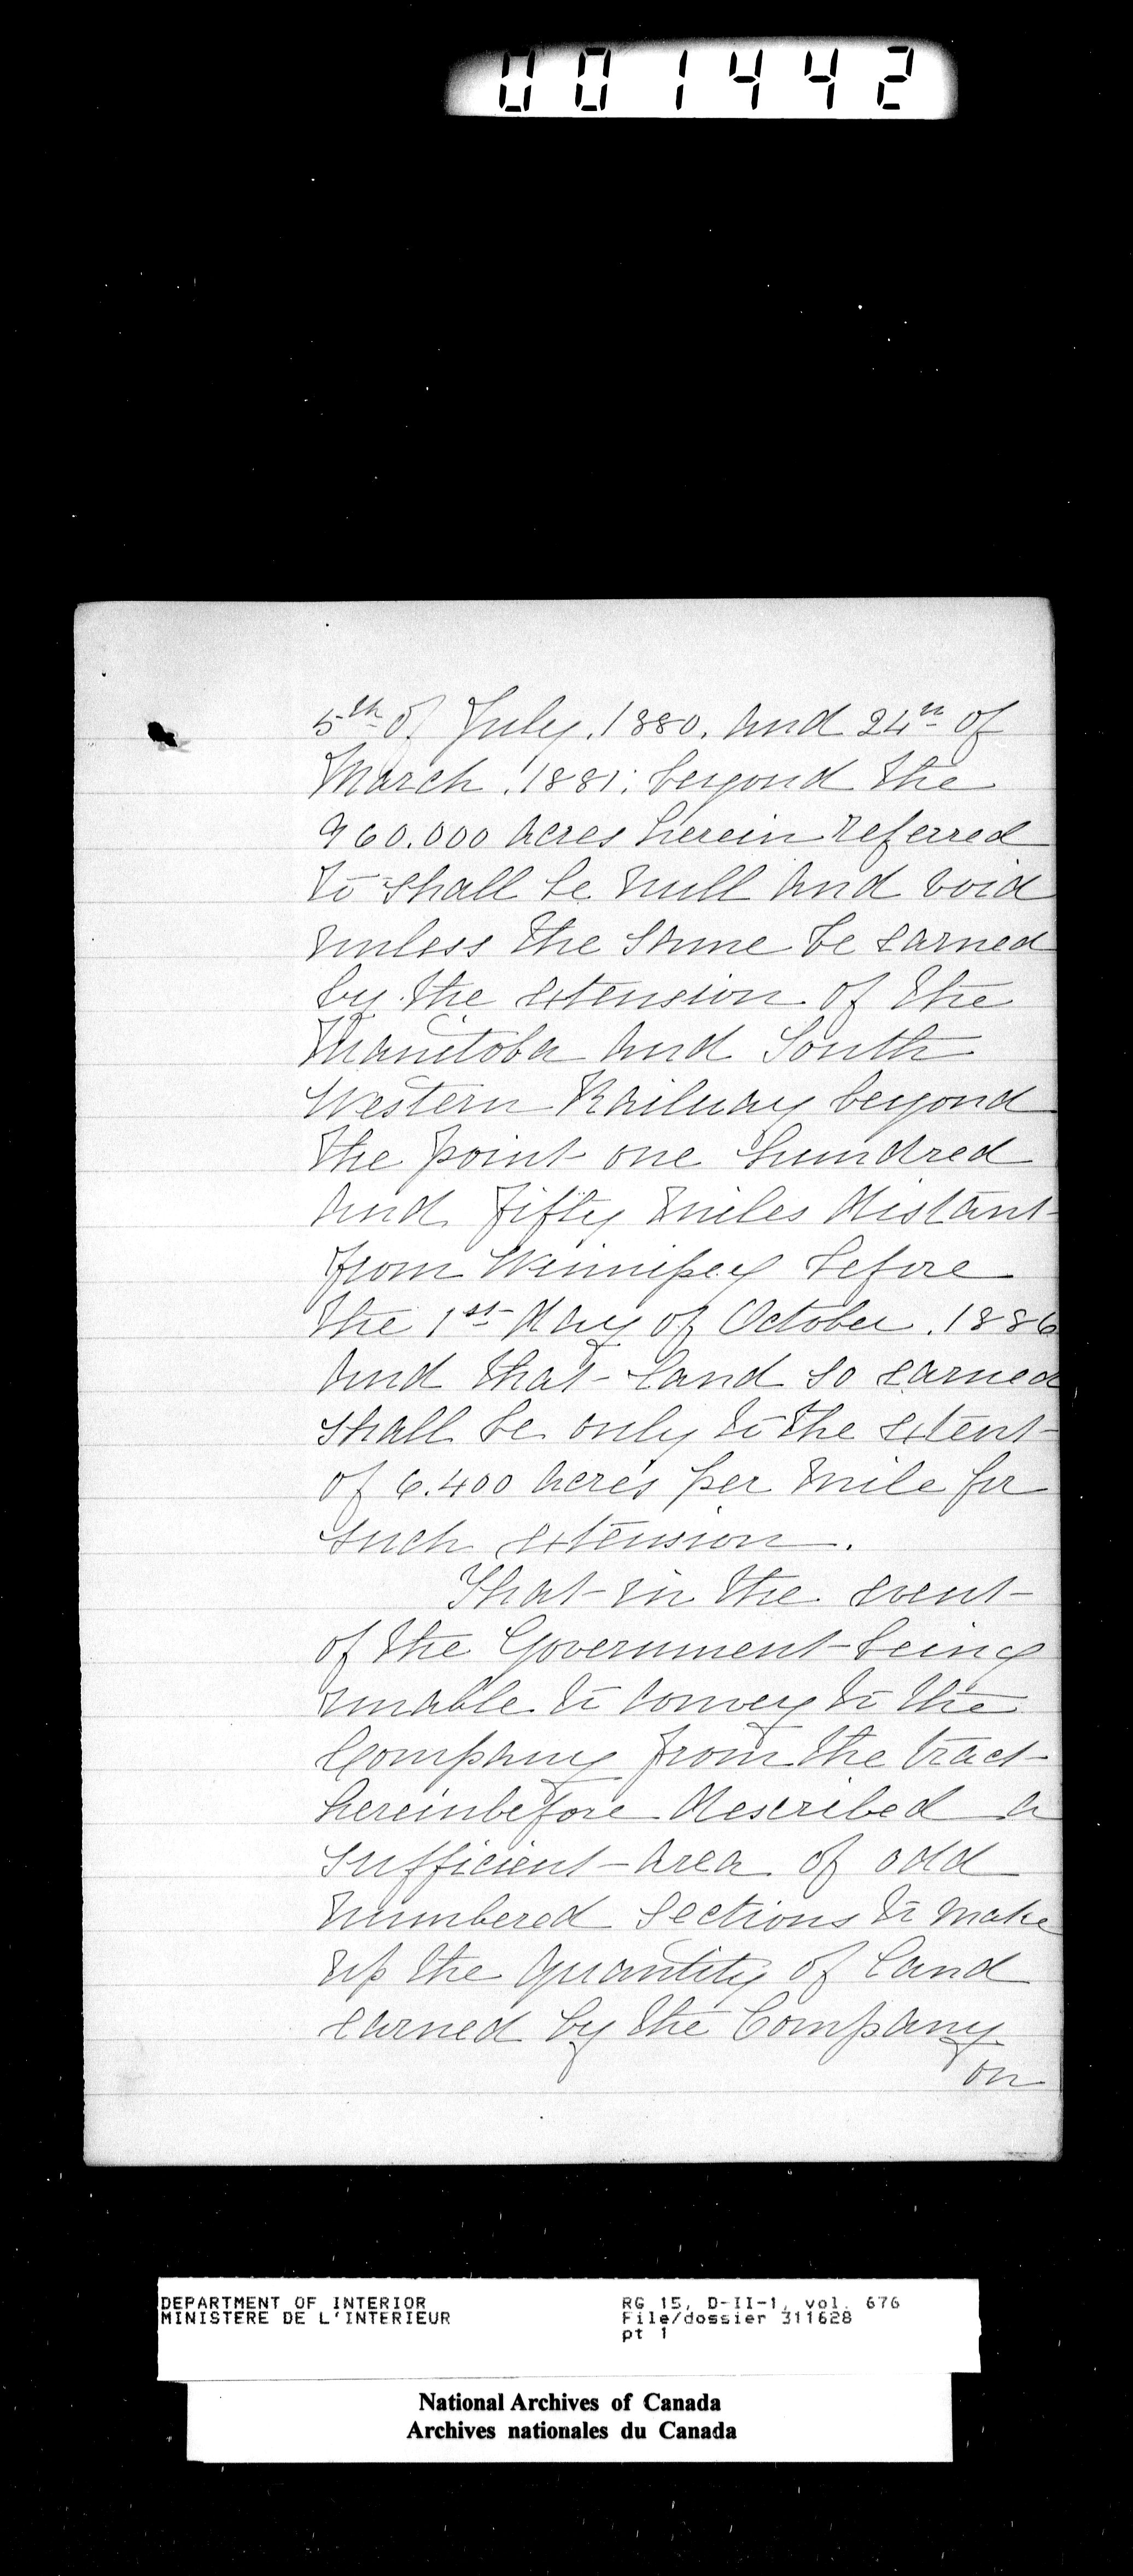 001442
5th of July, 1880, and 24th of
March, 1881; beyond the
960.000 acres herein referred
to shall be null and void
unless the same be earned
by the extension of the
Manitoba and South
Western Railway beyond
the point one hundred
and fifty miles distant
from Winnipeg before
the 1st day of October, 1886
and that land so earned
shall be only to the extent
of 6.400 acres per mile for
such extension.
That in the event
of the Government being
unable to convey to the
Company from the tract
hereinbefore described a
sufficient area of odd
numbered sections to make
up the quantity of land
earned by the Company
on
DEPARTMENT OF INTERIOR RG 15, D-II-1, vol. 676
MINISTERE DE L'INTERIEUR File/dossier 311628
pt 1
National Archives of Canada
Archives nationales du Canada